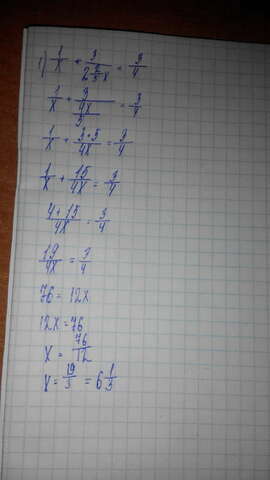 1) 1/x + 3/(2 2/5 x) = 3/4
1/x + 3/(4x/5) = 3/4
1/x + (3·5)/(4x) = 3/4
1/x + 15/(4x) = 3/4
(4+15)/(4x) = 3/4
19/(4x) = 3/4
76 = 12x
12x = 76
x = 76/12
x = 19/3 = 6 1/3